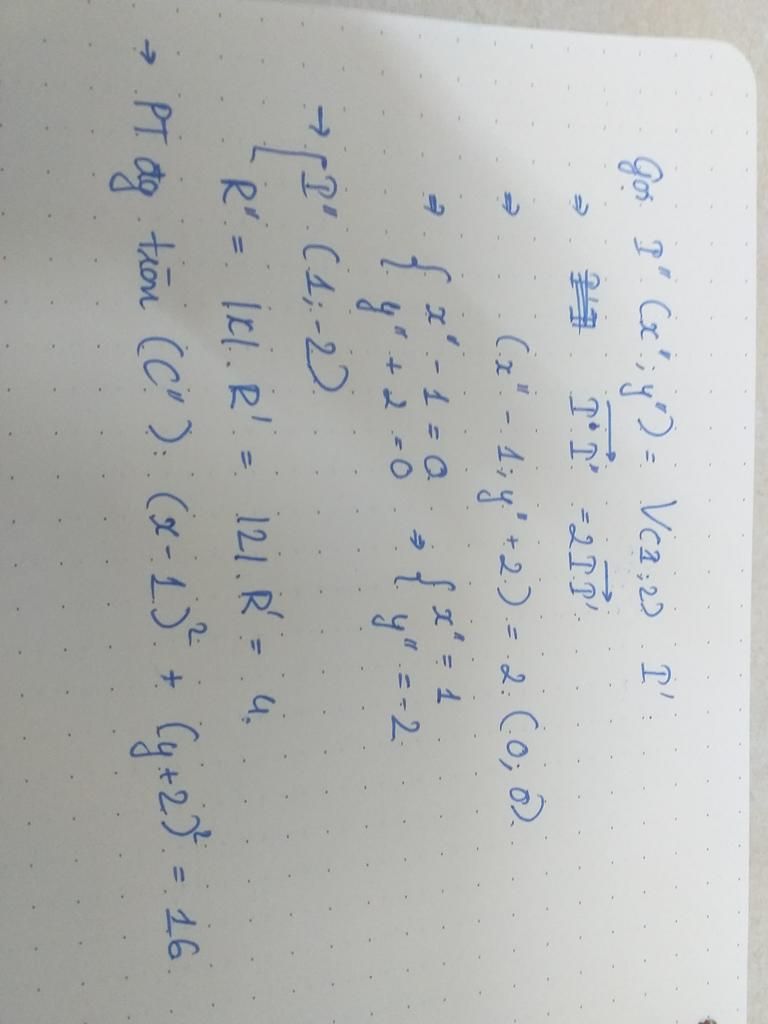 Gọi I" (x"; y") = V(I; 2) I'
⇒ I'I" = 2II'
⇒ (x" - 1; y" + 2) = 2. (0; 0).
⇒ { x" - 1 = 0 y" + 2 = 0 → { x" = 1 y" = -2
→ { I" (1; -2)
R" = |k|. R' = |2|. R' = 4.
→ PT đg tròn (C"): (x - 1)² + (y + 2)² = 16